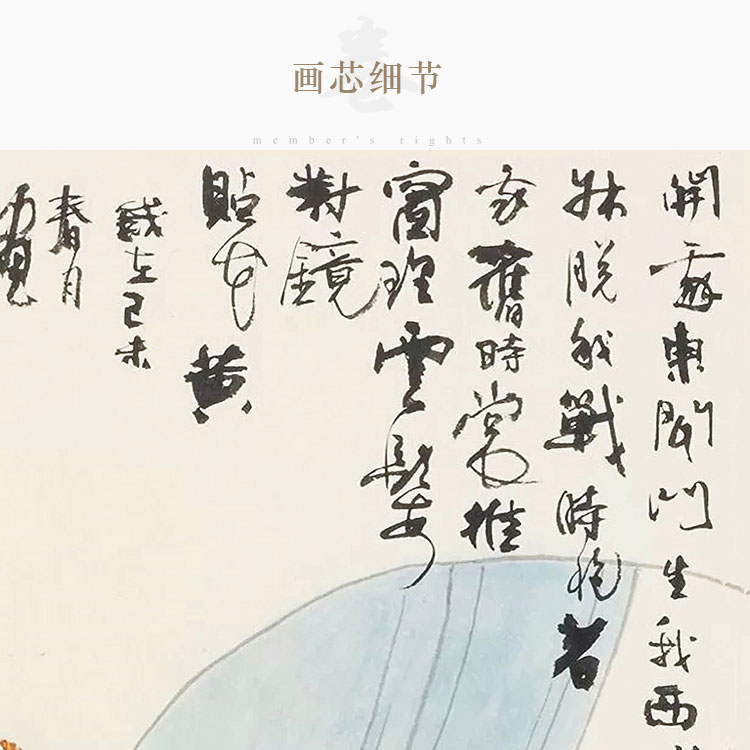 画芯细节
卷
member's rights
開東閣門坐我西
牀脫我戰時袍着
舊時裳推
窗理雲鬢
對鏡
貼花黃
歲在己未
春月